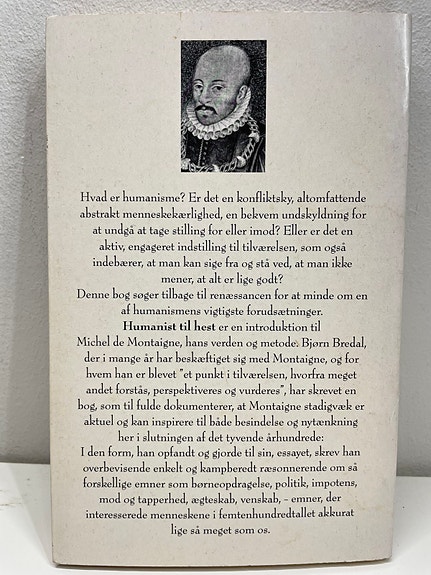 Hvad er humanisme? Er det en konfliktsky, altomfattende
abstrakt menneskekærlighed, en bekvem undskyldning for
at undgå at tage stilling for eller imod? Eller er det en
aktiv, engageret indstilling til tilværelsen, som også
indebærer, at man kan sige fra og stå ved, at man ikke
mener, at alt er lige godt?
Denne bog søger tilbage til renæssancen for at minde om en
af humanismens vigtigste forudsætninger.
Humanist til hest er en introduktion til
Michel de Montaigne, hans verden og metode. Bjørn Bredal,
der i mange år har beskæftiget sig med Montaigne, og for
hvem han er blevet "et punkt i tilværelsen, hvorfra meget
andet forstås, perspektiveres og vurderes", har skrevet en
bog, som til fulde dokumenterer, at Montaigne stadigvæk er
aktuel og kan inspirere til både besindelse og nytænkning
her i slutningen af det tyvende århundrede:
I den form, han opfandt og gjorde til sin, essayet, skrev han
overbevisende enkelt og kampberedt ræsonnerende om så
forskellige emner som børneopdragelse, politik, impotens,
mod og tapperhed, ægteskab, venskab, – emner, der
interesserede menneskene i femtenhundredtallet akkurat
lige så meget som os.